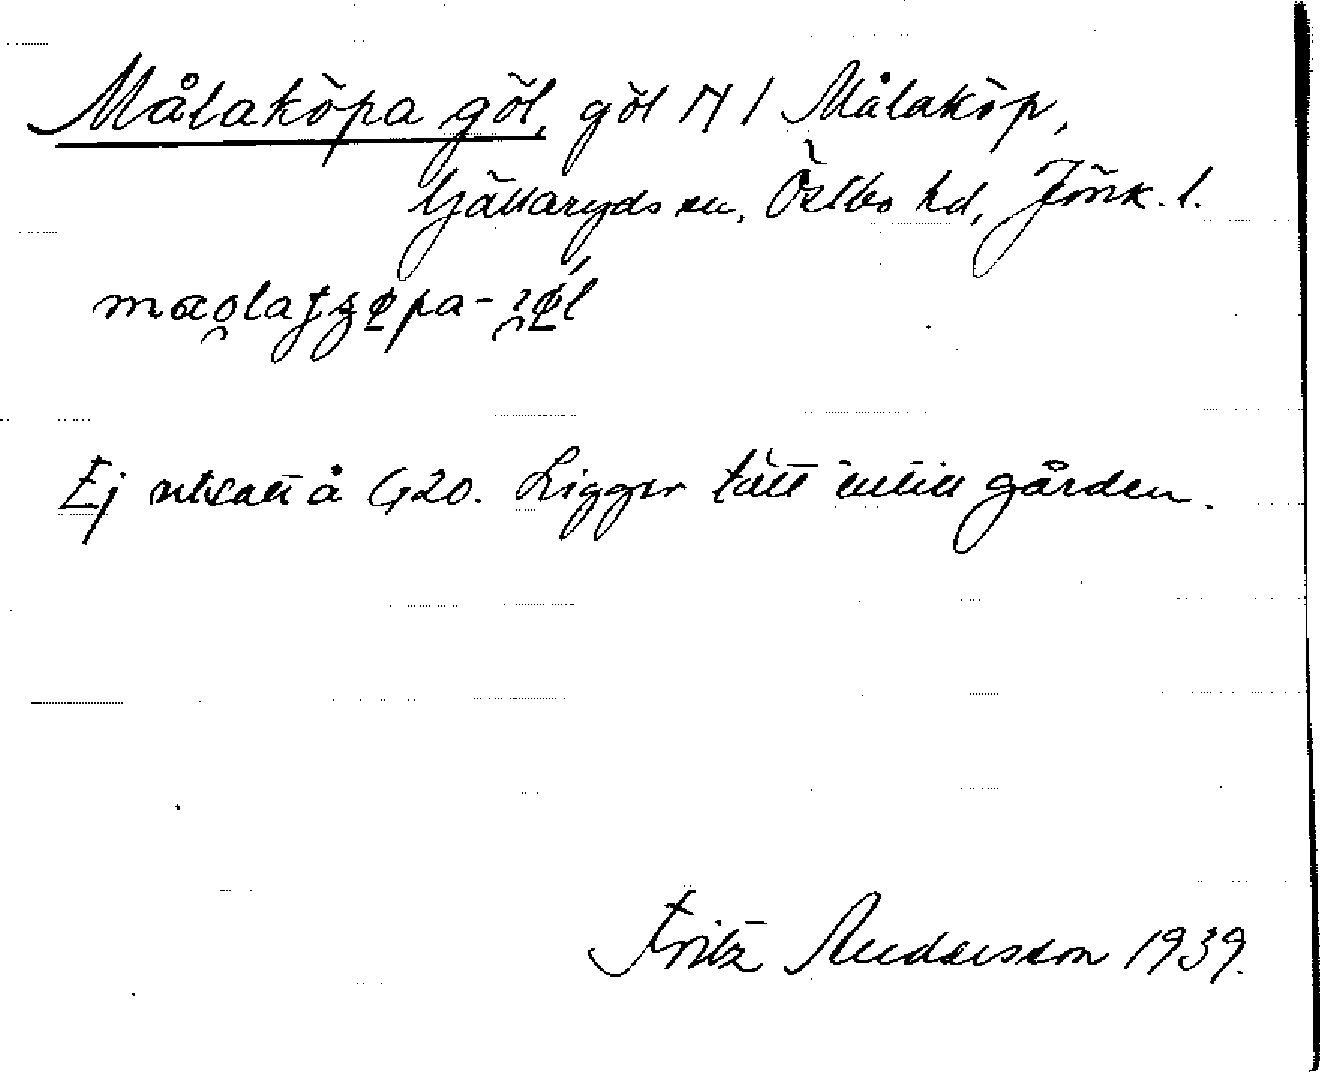 Målaköpa göl, göl N 1 Målaköp,
Gällaryds sn, Östbo hd, Jönk. l.
Ej utsatt å G20. Ligger tätt intill gården.
Fritz Andersson 1939.